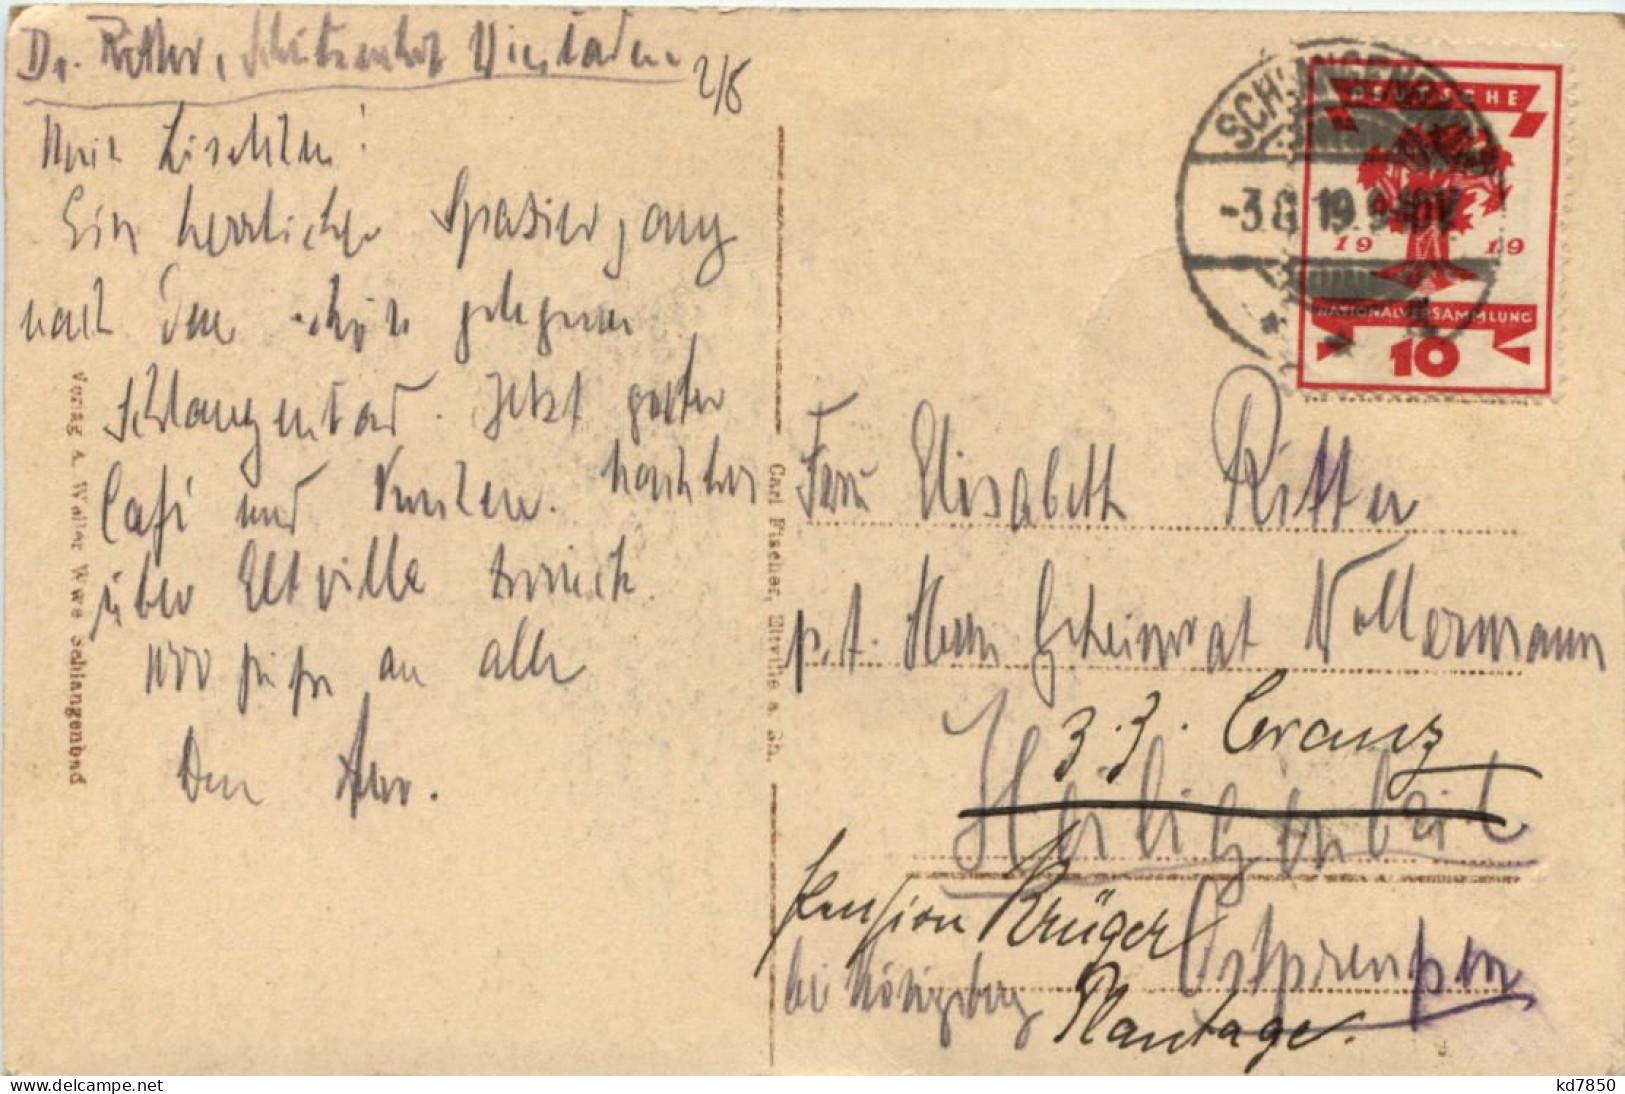 Dr. Ritter, Schützenhof Wiesbaden
2/8
Mein Lieschen!
Ein herrlicher Spaziergang
nach dem schön gelegenen
Schlangenbad. Jetzt guter
Café und Kuchen. Nachher
über Eltville zurück.
Grüße an alle
Dein
Frau Elisabeth Ritter
p. A. Herrn Geheimrat Vollermann
z. Z. Cranz
Heiligenbeil
Pension Krüger
Ostpreußen
bei Königsberg
Plantage.
SCHLANGENBAD
-3.8.19.9-10V
DEUTSCHE
19 19
NATIONALVERSAMMLUNG
10
Verlag A. Waller Wwe Schlangenbad
Carl Fischer, Eltville a. Rh.
kd7850